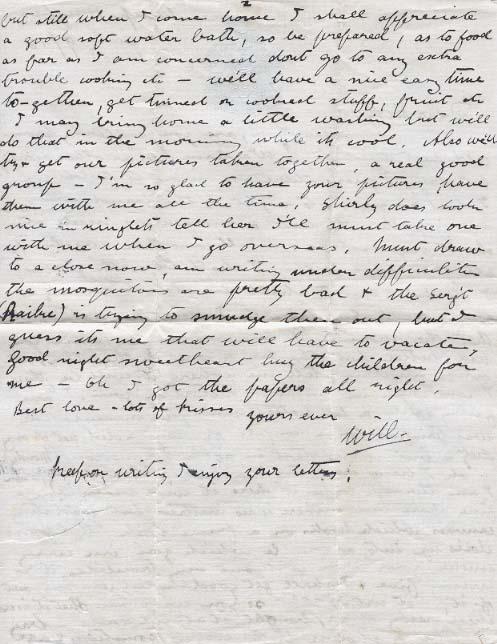 2
but still when I come home I shall appreciate
a good soft water bath, so be prepared, as to food
as far as I am concerned dont go to any extra
trouble cooking etc – we'll have a nice easy time
to-gether, get tinned or cooked stuff, fruit etc
I may bring home a little washing but will
do that in the morning while its cool. Also will
try & get our pictures taken together, a real good
group – I'm so glad to have your pictures have
them with me all the time. Shirly does look
nice in ringlets tell her I'll must take one
with me when I go overseas. Must draw
to a close now, am writing under difficulities
the mosquitoes are pretty bad & the Serg't
is trying to smudge them out, but I
guess its me that will have to vacate,
Good night sweetheart hug the children for
me – Oh I got the papers all right.
Best love – lots of kisses
yours ever
Will –
Keep on writing I enjoy your letters.